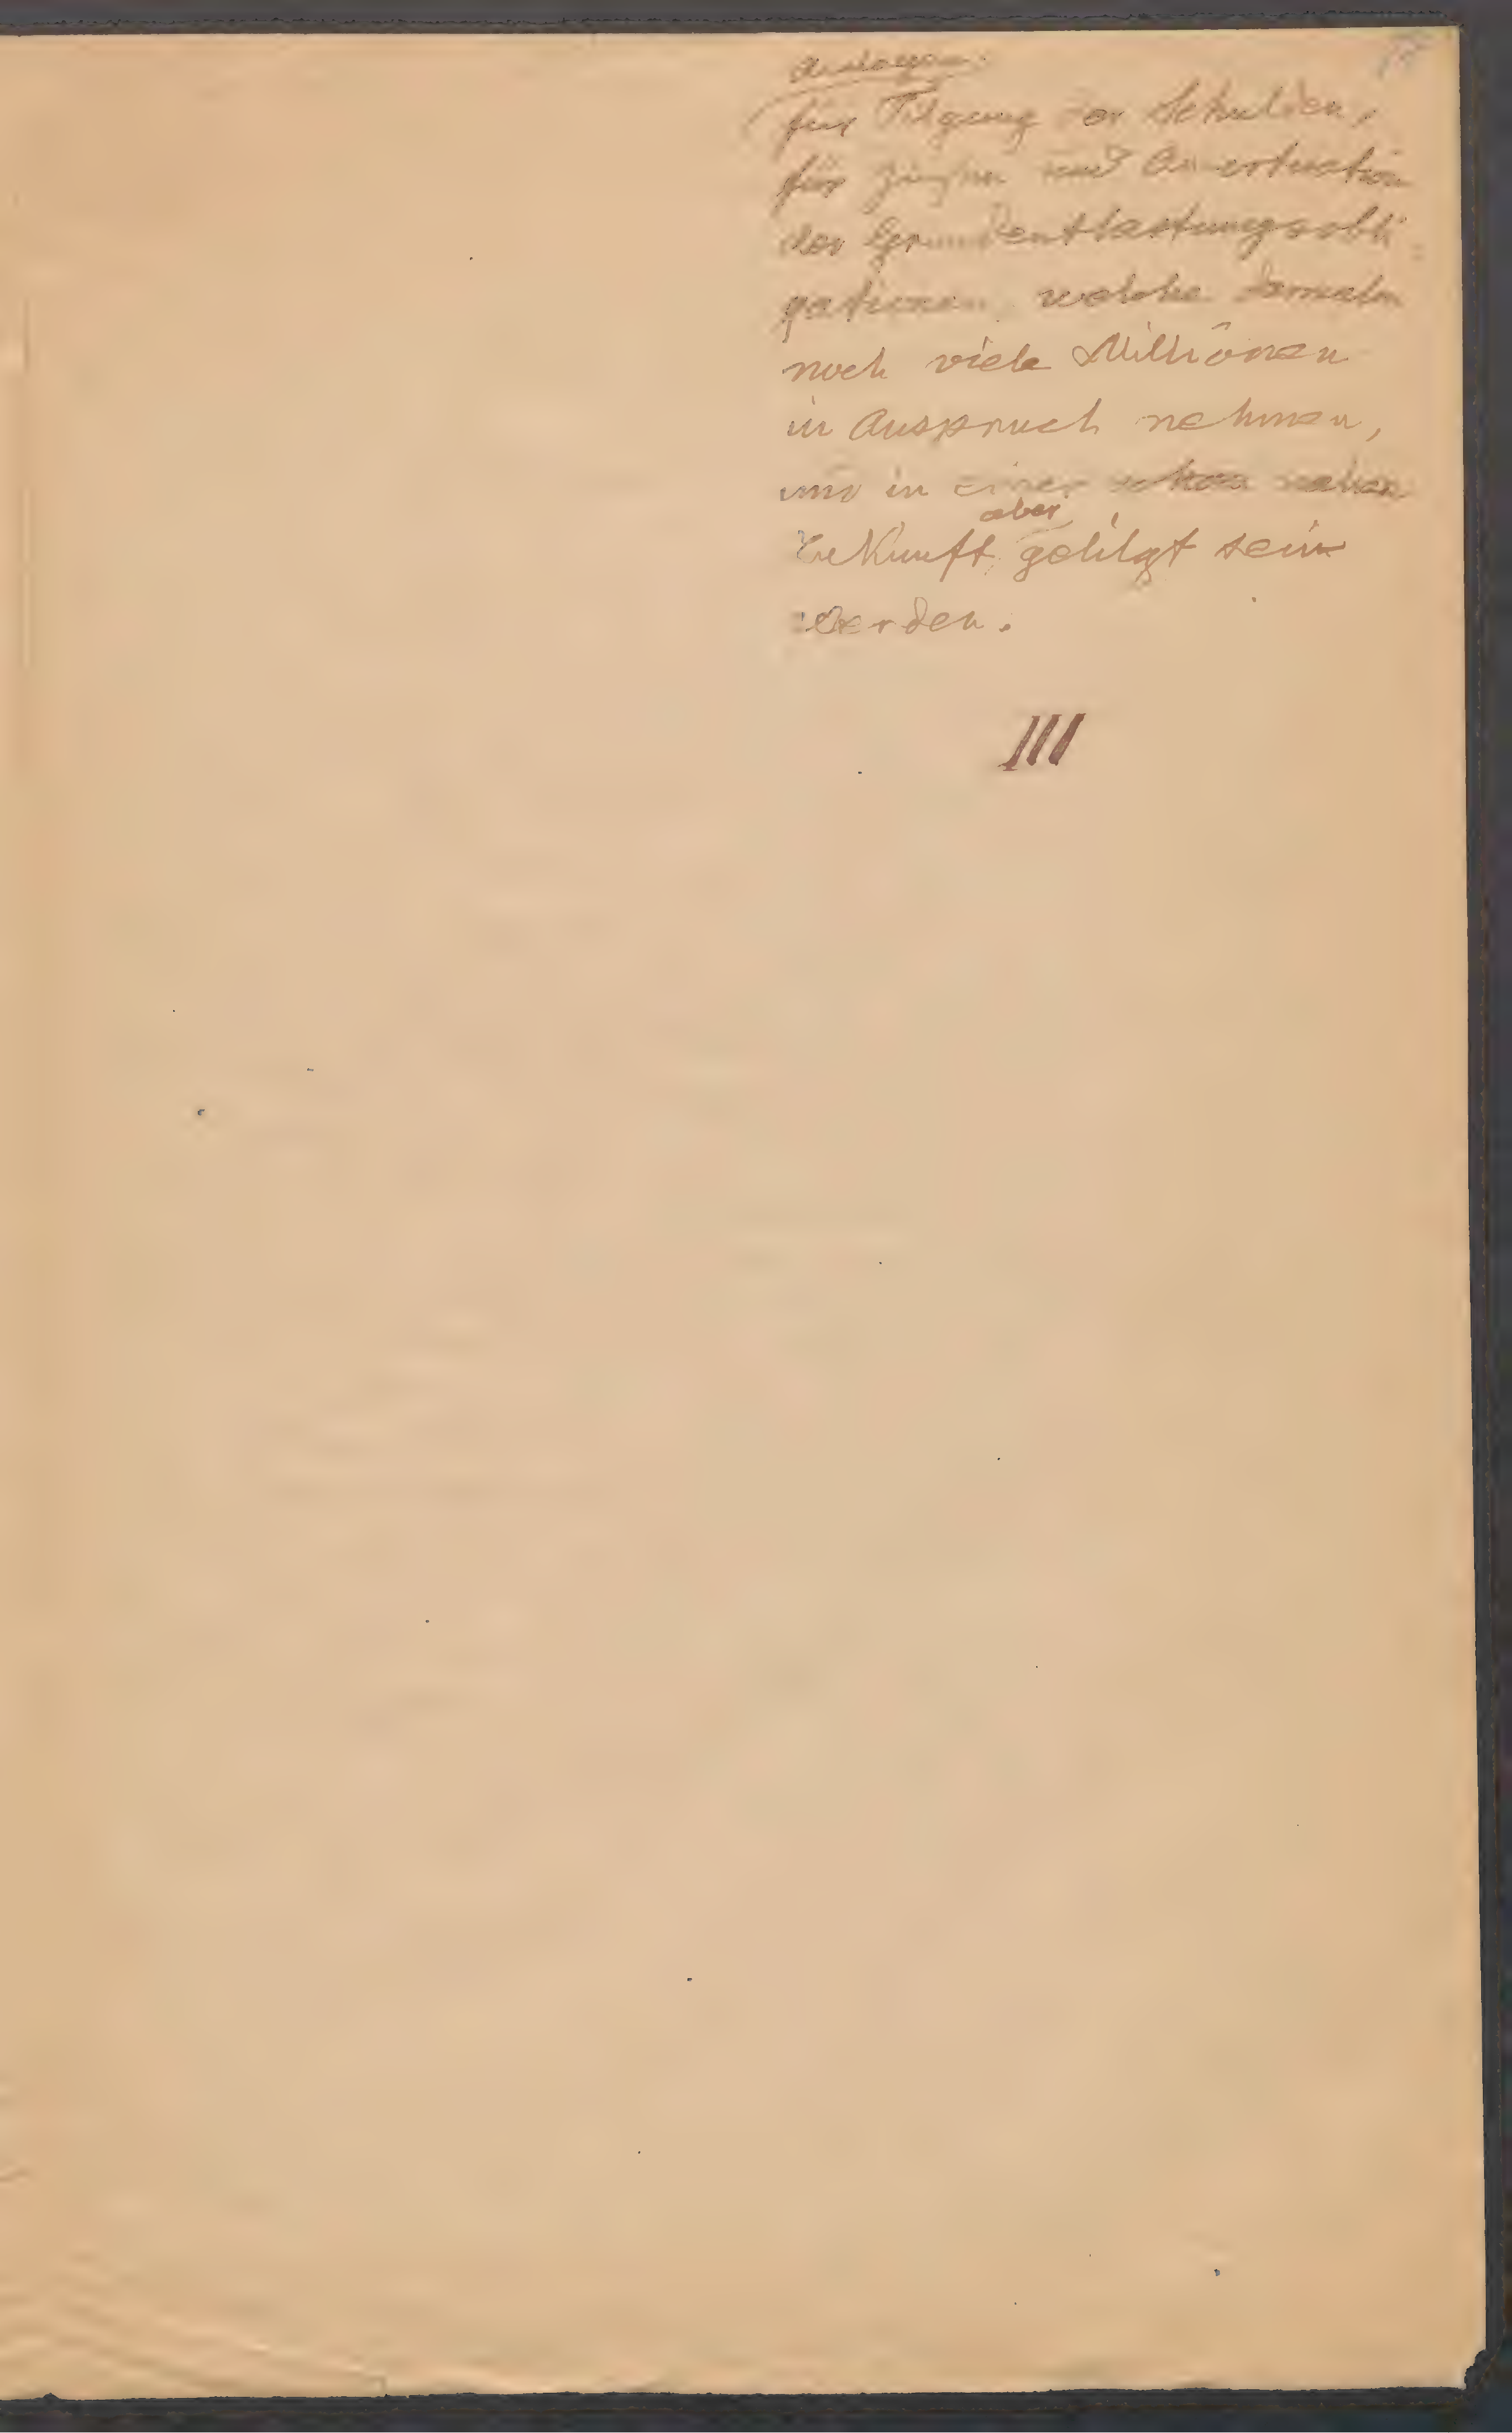 Auslagen
für Tilgung der Schulden,
für Zinsen und Amortisation
der Grundentlastungsobli-
gationen, welche damals
noch viele Millionen
in Anspruch nehmen,
und in einer schon nahen
aber
Zukunft, getilgt sein
werden.
III